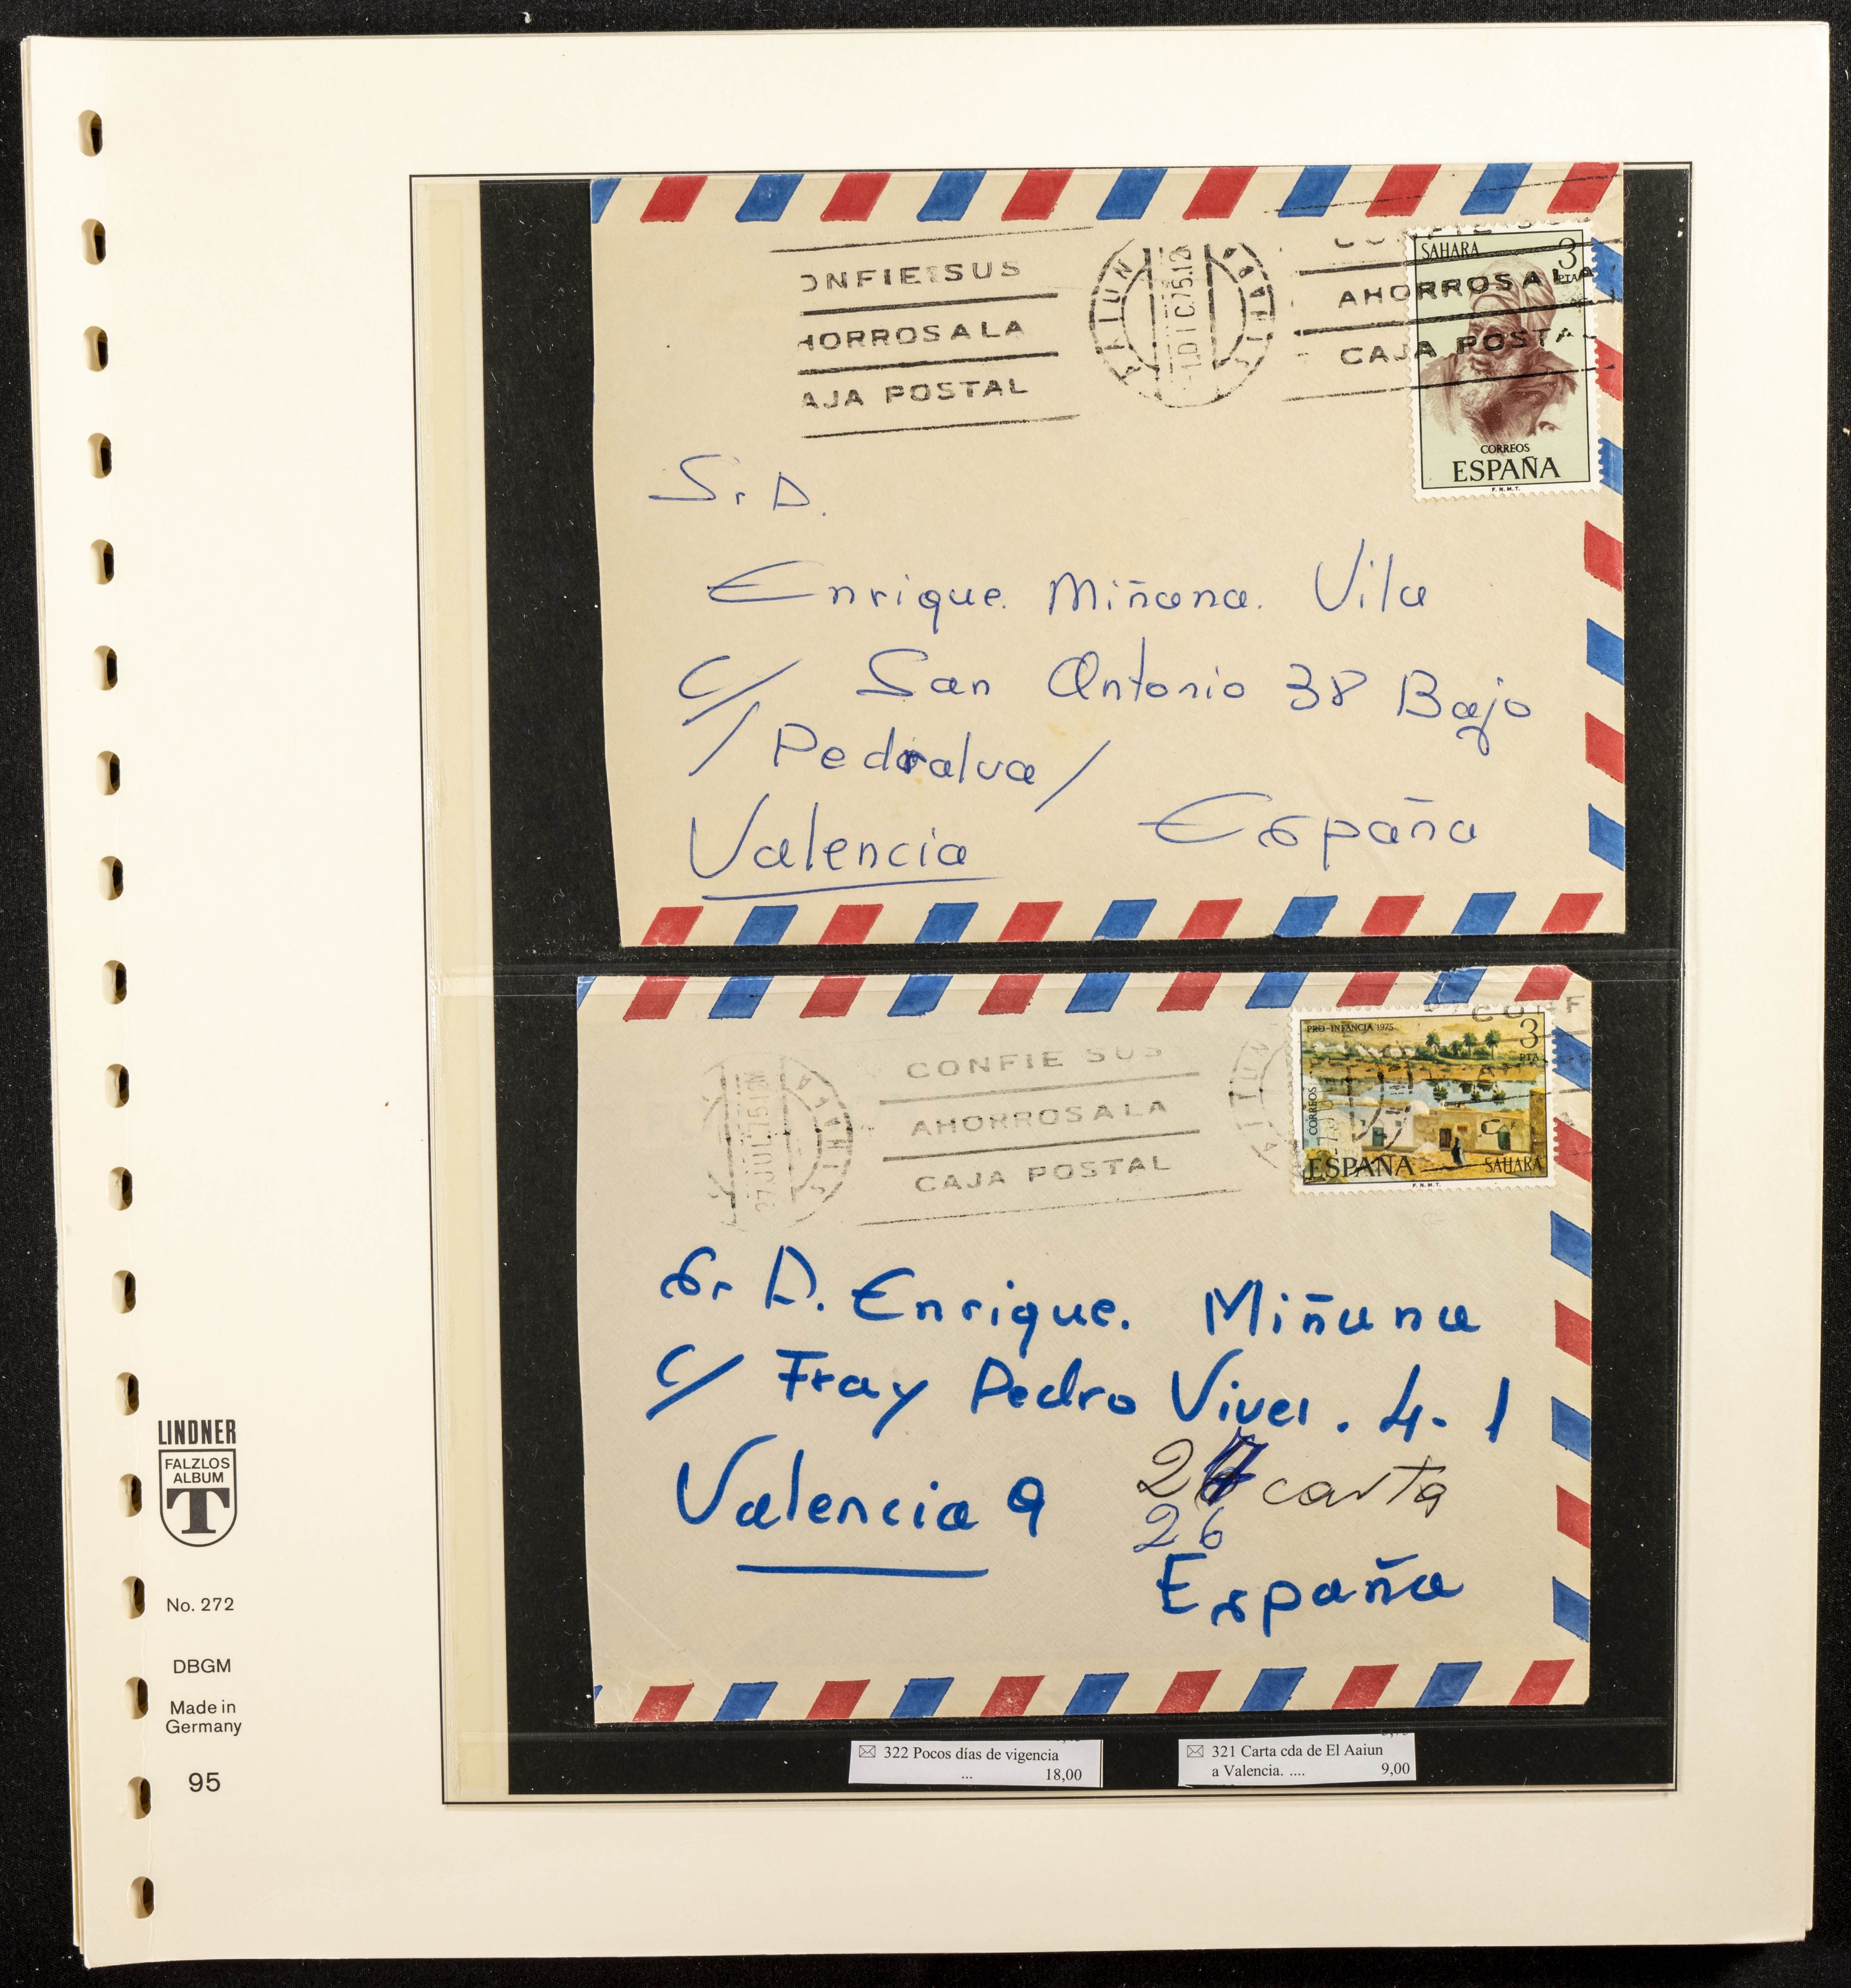 ONFIE SUS
HORROS A LA
AJA POSTAL
AAIUN
-1.DIC.75.12
SAHARA
3
PTA
AHORROS A LA
CAJA POSTAL
CORREOS
ESPAÑA
F.N.M.T.
Sr D.
Enrique. Miñana. Vila
c/ San Antonio 38 Bajo
/Pedralva/
Valencia España
CONFIE SUS
AHORROS A LA
CAJA POSTAL
27.JUL.75.12M
PRO-INFANCIA 1975
3
PTA
CORREOS
ESPAÑA SAHARA
F.N.M.T.
Sr D. Enrique. Miñana
c/ Fray Pedro Vives. 4-1
Valencia 9
carta
26
España
LINDNER
FALZLOS
ALBUM
T
No. 272
DBGM
Made in
Germany
95
322 Pocos días de vigencia
... 18,00
321 Carta cda de El Aaiun
a Valencia. .... 9,00